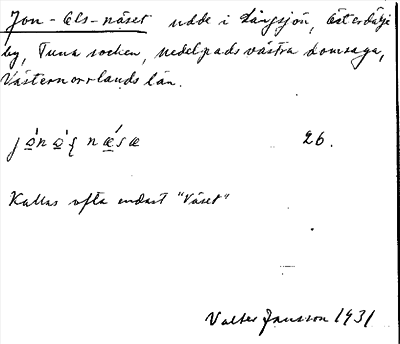 Jon-Els-näset udde i Långsjön, Österdälje
by, Tuna socken, medelpads västra domsaga,
Västernorrlands län.
26.
Kallas ofta endast "Näset"
Valter Jansson 1931